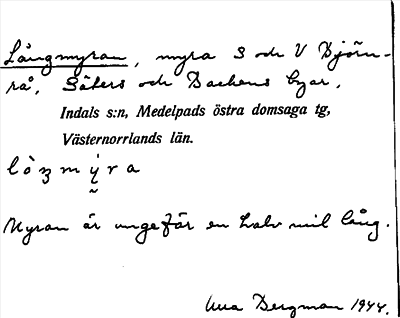 Långmyran, myra S och V Björn-
rå, Säters och Backens byar,
Indals s:n, Medelpads östra domsaga tg,
Västernorrlands län.
Myran är ungefär en halv mil lång.
Bergman 1944.